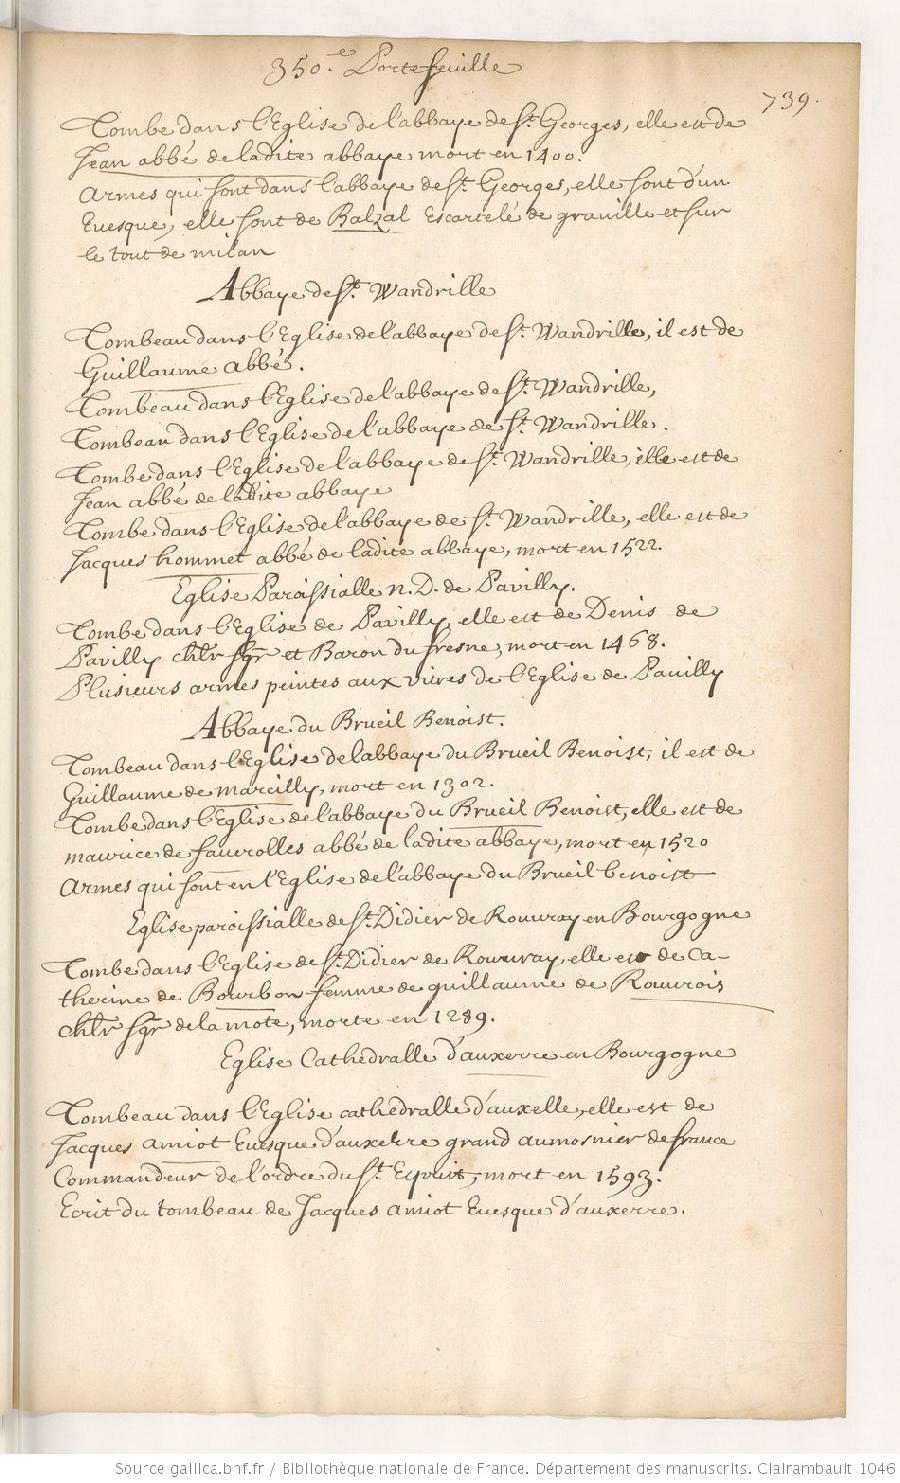 350.e Portefeuille
739.
Tombe dans l'Eglise de l'abbaye de St. Georges, elle est de
Jean abbé de ladite abbaye mort en 1400.
Armes qui sont dans l'abbaye de St. Georges, elle sont d'un
Evesque, elle sont de Balzal Escartelé de graville et sur
le tout de milan
Abbaye de St. Wandrille
Tombeau dans l'Eglise de l'abbaye de St. Wandrille, il est de
Guillaume abbé.
Tombeau dans l'Eglise de l'abbaye de St. Wandrille,
Tombeau dans l'Eglise de l'abbaye de St. Wandrille.
Tombe dans l'Eglise de l'abbaye de St. Wandrille, elle est de
Jean abbé de ladite abbaye
Tombe dans l'Eglise de l'abbaye de St. Wandrille, elle est de
Jacques hommet abbé de ladite abbaye, mort en 1522.
Eglise Paroissialle n. D. de Pavilly.
Tombe dans l'Eglise de Pavilly, elle est de Denis de
Pavilly chlr sgr et Baron du fresne, mort en 1468.
Plusieurs armes peintes aux vitres de l'Eglise de Pavilly
Abbaye du Brueil Benoist.
Tombeau dans l'Eglise de l'abbaye du Brueil Benoist, il est de
Guillaume de marcilly, mort en 1302.
Tombe dans l'Eglise de l'abbaye du Brueil Benoist, elle est de
maurice de faverolles abbé de ladite abbaye, mort en 1520
Armes qui sont en l'Eglise de l'abbaye du Brueil benoist
Eglise paroissialle de St. Didier de Rouvray en Bourgogne
Tombe dans l'Eglise de St. Didier de Rouvray, elle est de Ca-
therine de Bourbon femme de guillaume de Rouvrois
chlr sgr de la mote, morte en 1289.
Eglise Cathédralle d'auxerre en Bourgogne
Tombeau dans l'Eglise cathédralle d'auxelle, elle est de
Jacques amiot Evesque d'auxerre grand aumosnier de france
Commandeur de l'ordre du St. Esprit, mort en 1593.
Ecrit du tombeau de Jacques amiot Evesque d'auxerre.
Source gallica.bnf.fr / Bibliothèque nationale de France. Département des manuscrits. Clairambault 1046